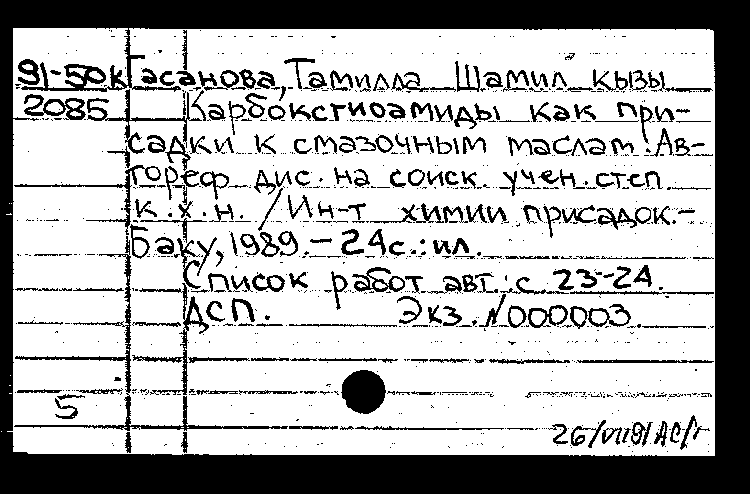 91-50к Гасанова, Тамилла Шамил кызы
2085 Карбоксгиоамиды как при-
садки к смазочным маслам: Ав-
тореф дис. на соиск. учен. степ
к.х.н. / Ин-т химии присадок.-
Баку, 1989.- 24с.: ил.
Список работ авт.: с 23-24.
ДСП. Экз. N000003.
5
26/VII91